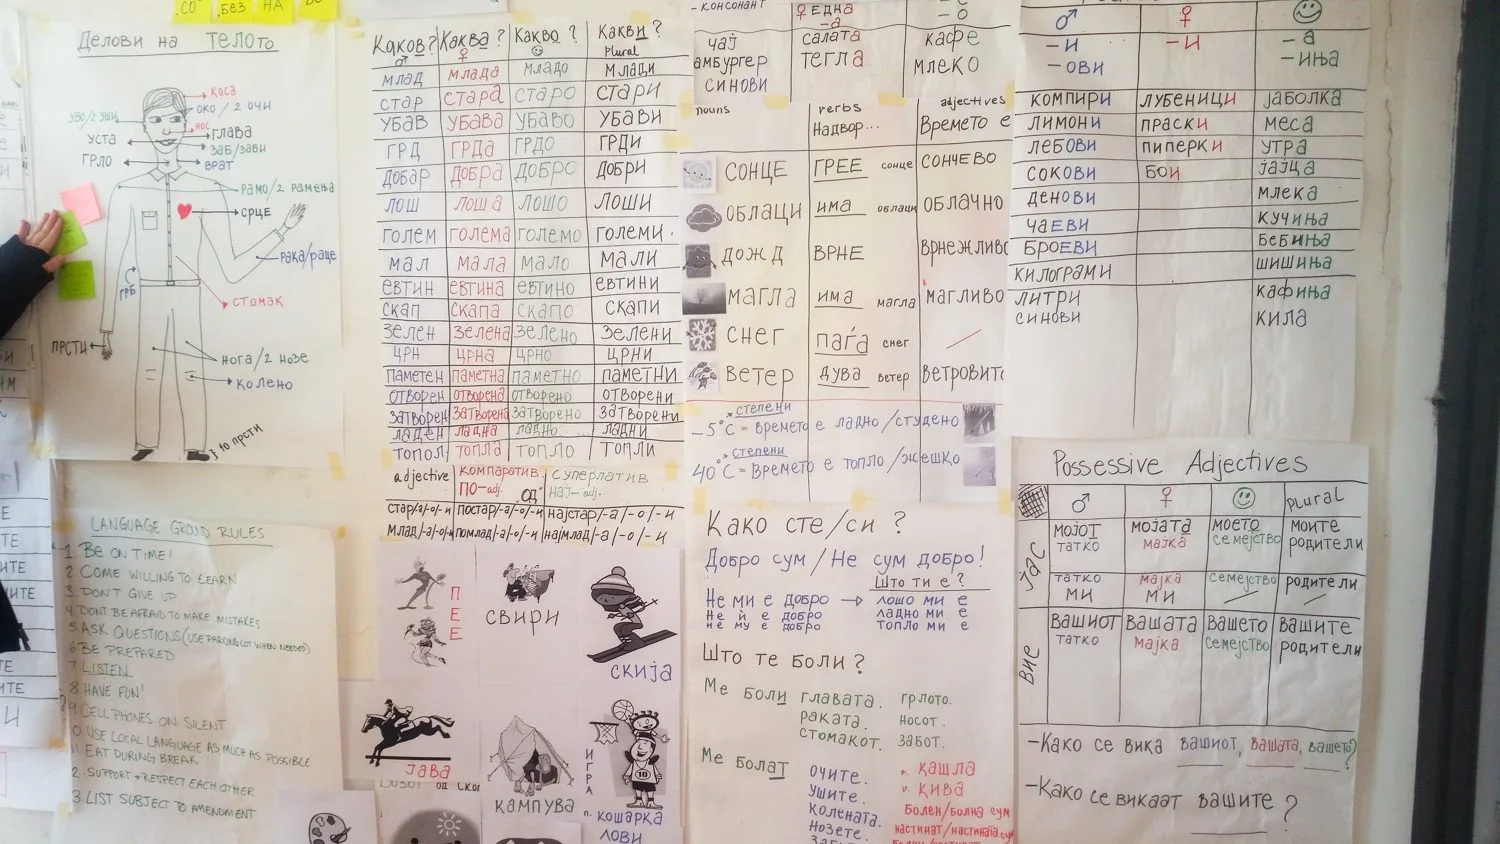 .СО
.БЕЗ
НА
Делови на ТЕЛОто
коса
око / 2 очи
уво/2 уши
нос
глава
уста
заб/заби
грло
врат
рамо/2 рамења
срце
рака/раце
грб
стомак
прсти
нога/2 нозе
колено
10 прсти
LANGUAGE GROUND RULES
1. BE ON TIME!
2. COME WILLING TO LEARN
3. DON'T GIVE UP
4. DONT BE AFRAID TO MAKE MISTAKES
5. ASK QUESTIONS (USE PARKING LOT WHEN NEEDED)
6. BE PREPARED
7. LISTEN
8. HAVE FUN!
9. CELLPHONES ON SILENT
0. USE LOCAL LANGUAGE AS MUCH AS POSSIBLE
11. EAT DURING BREAK
2. SUPPORT + RESPECT EACH OTHER
3. LIST SUBJECT TO AMENDMENT
Каков? Каква? Какво? Какви?
♂ ♀ Plural
млад млада младо млади
стар стара старо стари
убав убава убаво убави
грд грда грдо грди
добар добра добро добри
лош лоша лошо лоши
голем голема големо големи.
мал мала мало мали
евтин евтина евтино евтини
скап скапа скапо скапи
зелен зелена зелено зелени
црн црна црно црни
паметен паметна паметно паметни
отворен отворена отворено отворени
затворен затворена затворено затворени
ладен ладна ладно ладни
топол топла топло топли
adjective компаратив. суперлатив
ПО-adj. "ОД" НАЈ-adj.
стар/-а/-о/-и постар/-а/-о/-и најстар/-а/-о/-и
млад/-а/-о/-и помлад/-а/-о/-и најмлад/-а/-о/-и
ПЕЕ
СВИРИ
СКИЈА
ЈАВА
КАМПУВА
ИГРА
КОШАРКА
ЛОВИ
- консонант ♀ една
-а - о
чај салата кафе
амбургер тегла млеко
синови
nouns verbs adjectives
Надвор... Времето е
СОНЦЕ ГРЕЕ сонце СОНЧЕВО
ОБЛАЦИ има облаци ОБЛАЧНО
ДОЖД ВРНЕ ВРНЕЖЛИВО
МАГЛА има магла МАГЛИВО
СНЕГ паѓа снег
ВЕТЕР дува ветер ВЕТРОВИТО
степени
-5°C = времето е ладно/студено
степени
40°C = времето е топло/жешко
Како сте/си ?
Добро сум / Не сум добро!
Што ти е?
Не ми е добро → лошо ми е
Не ѝ е добро ладно ми е
не му е добро топло ми е
Што те боли?
Ме боли главата. грлото.
раката. носот.
стомакот. забот.
Ме болат очите. кашла
ушите. кива
колената. Болен/болна сум
нозете. настинат/настината сум
♂ ♀
-и -и -а
-ови -иња
компири лубеници јаболка
лимони праски меса
лебови пиперки утра
сокови бои јајца
денови млека
чаеви кучиња
броеви бебиња
килограми шишиња
литри кафиња
синови кила
Possessive Adjectives
♂ ♀ plural
ЈАС
мојот мојата моето моите
татко мајка семејство родители
татко мајка семејство родители
ми ми
ВИЕ
Вашиот Вашата Вашето Вашите
татко мајка семејство родители
-Како се вика вашиот, вашата, вашето?
-Како се викаат вашите ?